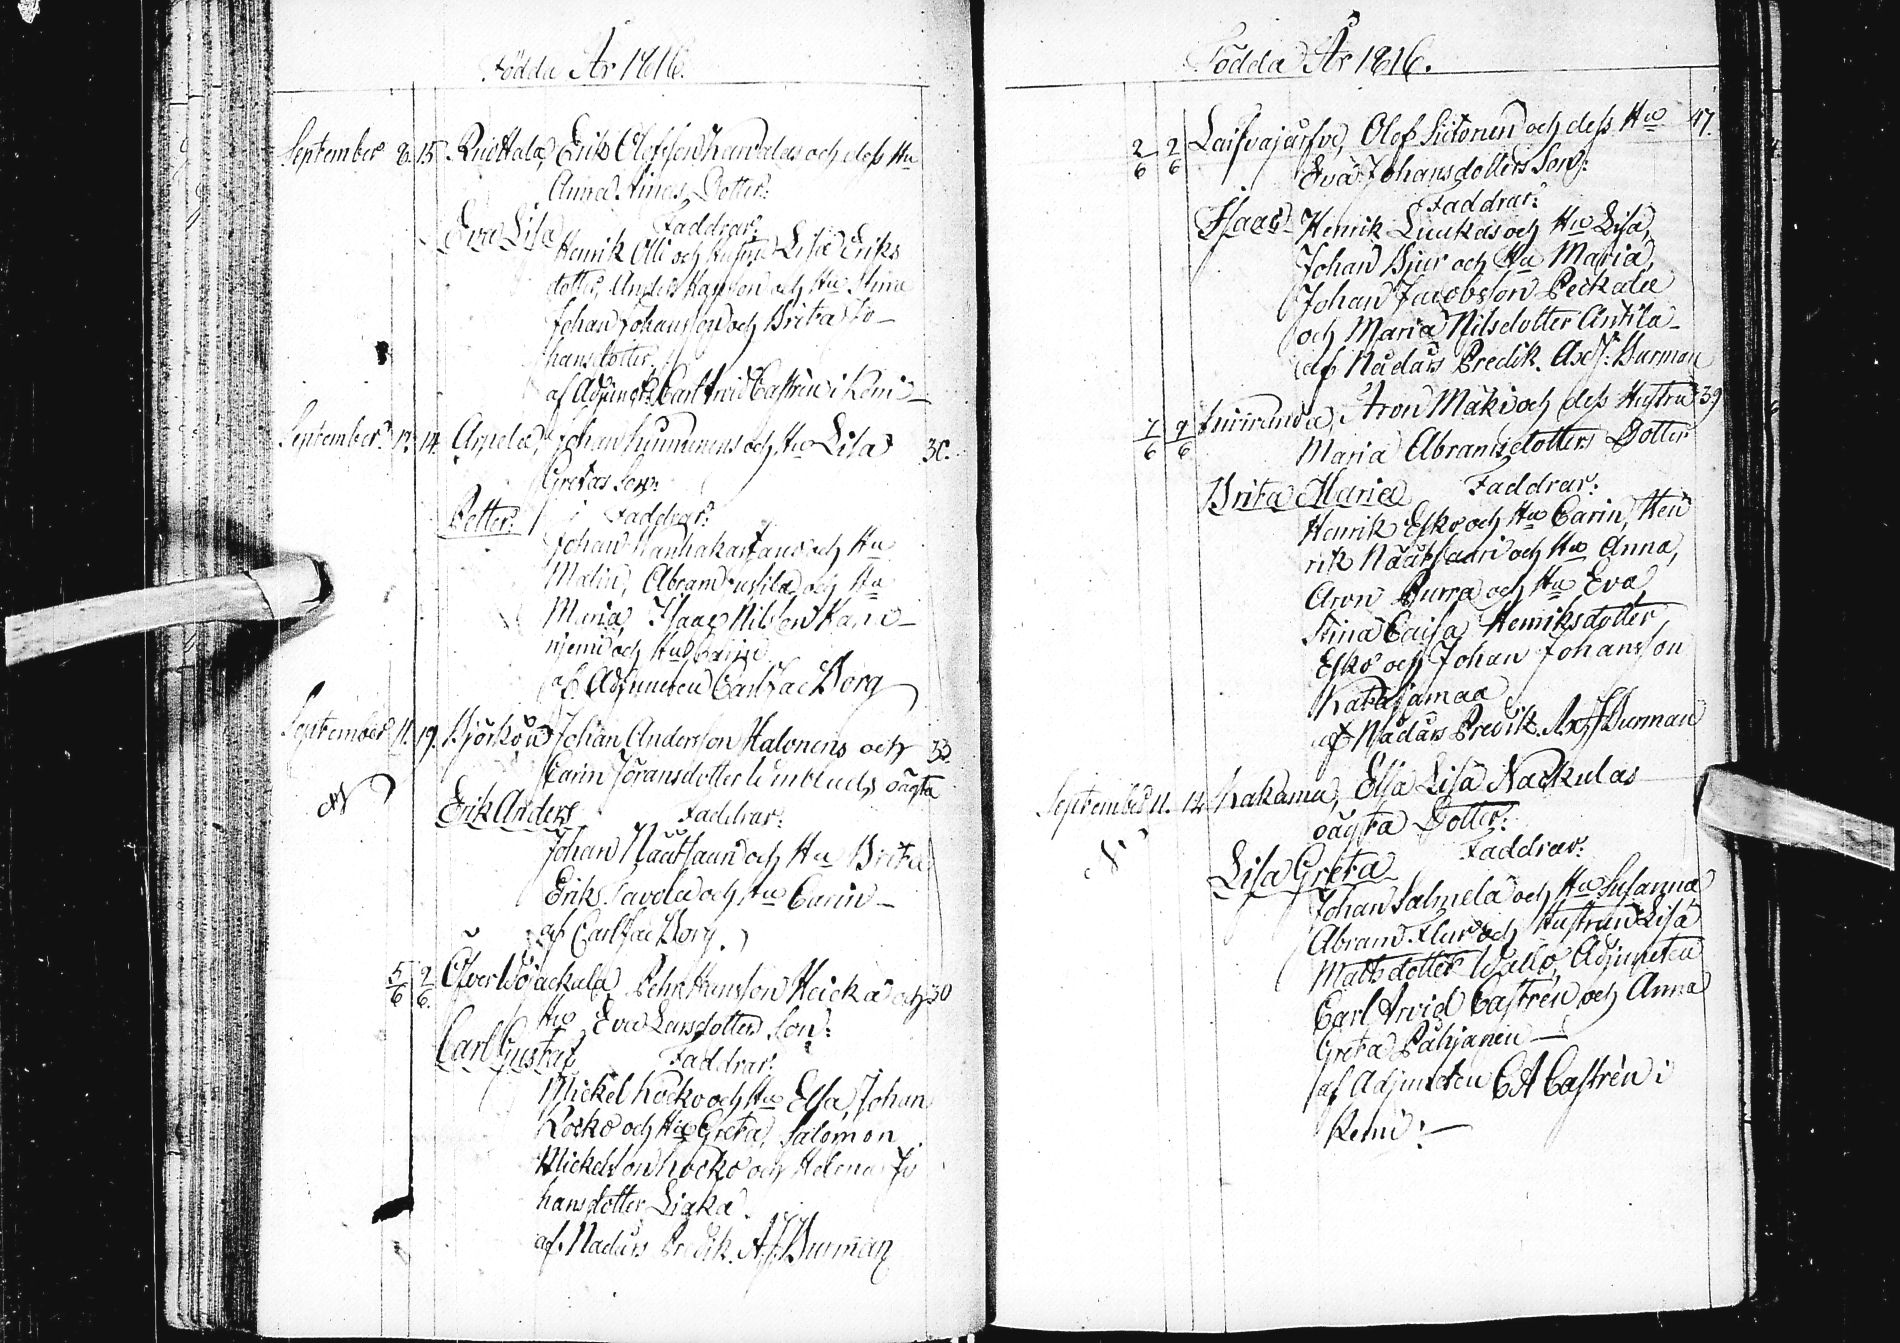 Födda År 1816.
September 8. 15. Eriks Olofsson och dess Hu
Anna Stinas Dotter:
Eva Lisa Faddrar:
Henrik Olli och Hustru Lisa Eriks
dotter, Anders Hansson och Hu Stina
Johan Johansson och Brita Jo-
hansdotter,
af Adjuncten Carl Arvid Castrén i Kemi
September 14. Arpela, Johan och Hu Lisa
Gretas Son:
Petter: Faddrar:
Johan och Hu
Malin, Abram och Hu
Maria, Isaac Nilsson
niemi och Hu Carin
af Adjuncten Carl Jac Borg
September 11. 19. Björkön Johan Andersson Halonens och 33.
Carin Joransdotter oägta
Erik Anders Faddrar:
Johan Näätsaari och Hu Brita
Erik Savela och Hu Carin
af Carl Jac Borg.
5/6 9/6 Öfver Wojackala Pehr Hansson Heicka och 30
Hu Eva Larsdotters Son:
Carl Gustaf Faddrar:
Mickel Kocko och Hu Elsa, Johan
Kocko och Hu Greta, Salomon
Mickelsson Kocko och Helena Jo
hansdotter Liaka.
af Nådårs Predik. A. J. Burman
Födda År 1816.
2/6 2/6 Laifvajärfve, Olof Sietonen och dess Hu 47.
Eva Johansdotters Son:
Faddrar:
Isaac Henrik Luukas och Hu Lisa,
Johan Bjur och Hu Maria,
Johan Jacobsson Peckala
och Maria Nilsdotter Antila
af Nådårs Predik. Ax J: Burman
7/6 9/6 Aron Mäki och dess Hustru 39
Maria Abramsdotters Dotter
Brita Maria Faddrar:
Henrik Esko och Hu Carin, Hen
rik Näätsaari och Hu Anna,
Aron Purra och Hu Eva,
Stina Caisa Henriksdotter
Esko och Johan Johansson
Katajamaa
af Nådårs Predik. Ax J Burman
September 11. 14. Kakama, Elsa Lisa Nackulas
oägta Dotter:
Faddrar:
Lisa Greta
Johan Salmela och Hu Susanna
Abram och Hustrun Lisa
Mattsdotter Adjuncten
Carl Arvid Castrén och Anna
Greta Pahjanen
af Adjuncten C A Castrén i
Kemi: